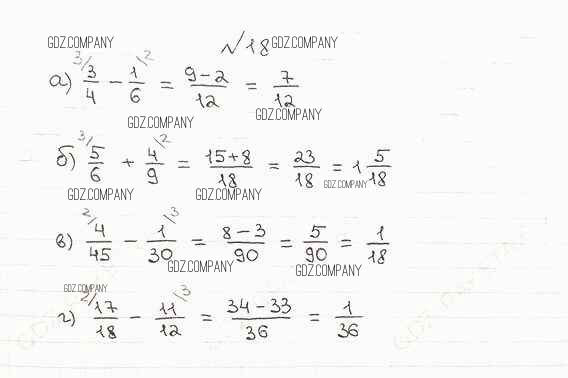 GDZ.COMPANY №18 GDZ.COMPANY
а) 3/ 3/4 − 1/6 \2 = (9−2)/12 = 7/12
GDZ.COMPANY GDZ.COMPANY
б) 3/ 5/6 + 4/9 \2 = (15+8)/18 = 23/18 = 1 5/18
GDZ.COMPANY GDZ.COMPANY GDZ.COMPANY
в) 2/ 4/45 − 1/30 \3 = (8−3)/90 = 5/90 = 1/18
GDZ.COMPANY GDZ.COMPANY
GDZ.COMPANY
г) 2/ 17/18 − 11/12 \3 = (34−33)/36 = 1/36